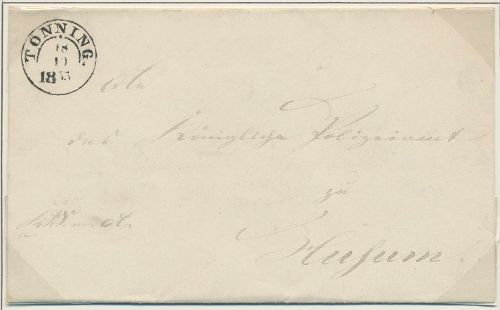 TONNING.
18
18
An
das Königliche Polizeiamt
zu
Husum.